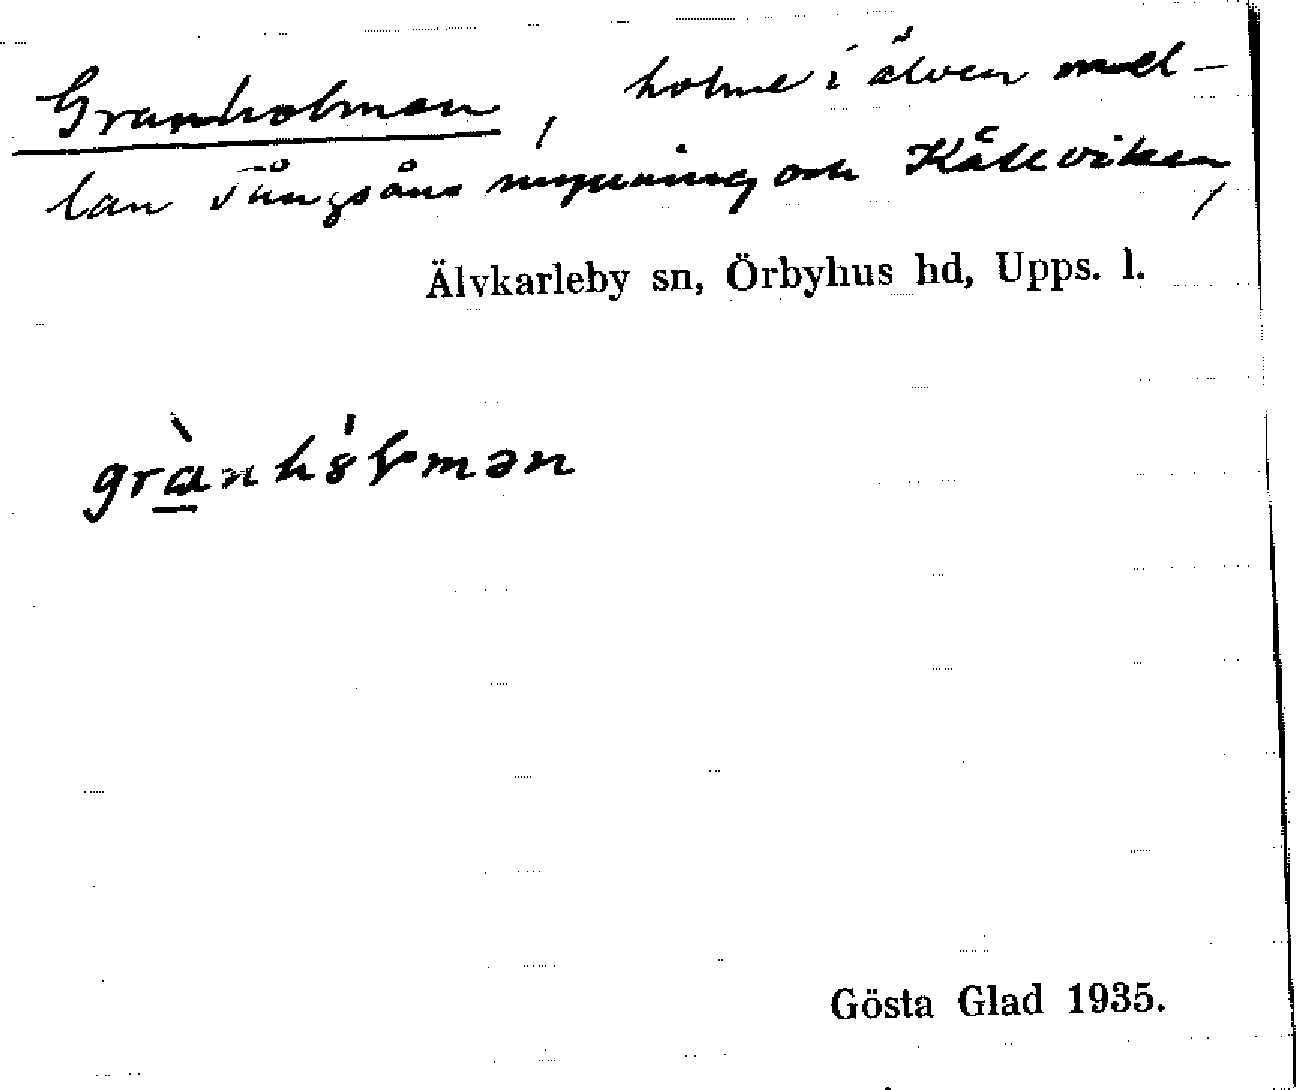 Granholmen, holme i älven mel-
lan Tångsåns mynning och Kållviken,
Älvkarleby sn, Örbyhus hd, Upps. l.
grànhólmən
Gösta Glad 1935.